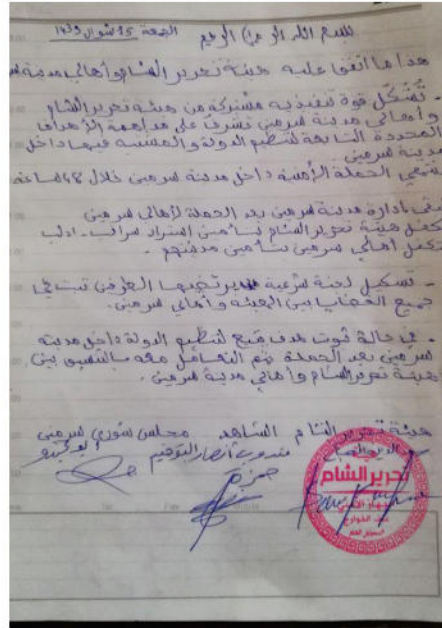 بسم الله الرحمن الرحيم الجمعة 15 شوال 1439
هذا ما اتفقا عليه هيئة تحرير الشام وأهالي مدينة
- تشكل قوة تنفيذية مشتركة من هيئة تحرير الشام
وأهالي مدينة سرمين تشرف على مداهمة الأهداف
المحددة التابعة لتنظيم الدولة والمشتبه فيها داخل
مدينة سرمين
تنتهي الحملة الأمنية داخل مدينة سرمين خلال 48 ساعة
إدارة مدينة سرمين بعد الحملة لأهالي سرمين
تكفل هيئة تحرير الشام تأمين سراقب - ادلب
تكفل أهالي سرمين بتأمين مدينتهم .
- تشكيل لجنة شرعية يرتضيها الطرفين تبت في
جميع القضايا بين الهيئة وأهالي سرمين .
- في حالة ثبوت هدف يتبع لتنظيم الدولة داخل مدينة
سرمين بعد الحملة يتم التعامل معه بالتنسيق بين
هيئة تحرير الشام وأهالي مدينة سرمين .
هيئة تحرير الشام الشاهد مجلس شورى سرمين
مندوب أنصار التوحيد
حمزة
تحرير الشام